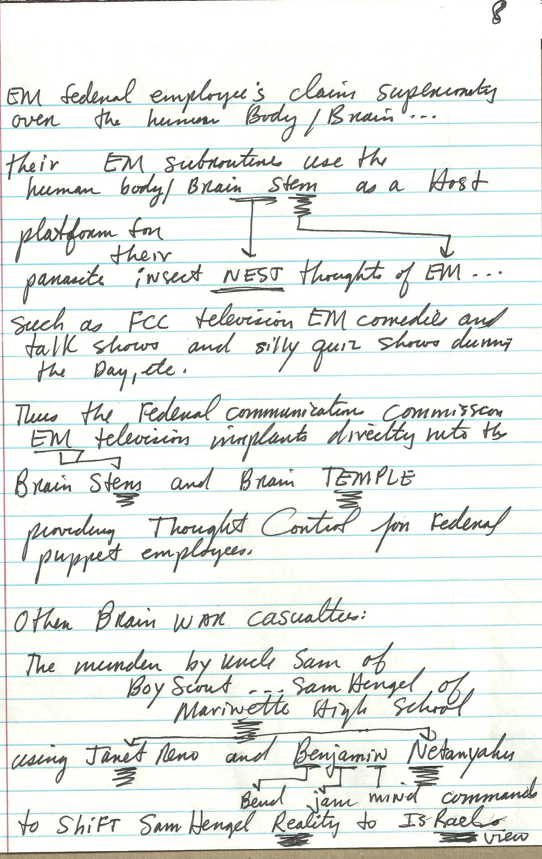 8
EM federal employee's claim superiority
over the human Body/Brain...
their EM subroutines use the
human body/Brain Stem as a Host
platform for
their
parasite insect NEST thoughts of EM...
such as FCC television EM comedies and
talk shows and silly quiz shows during
the Day, etc.
Thus the Federal communication Commission
EM television implants directly into the
Brain Stems and Brain TEMPLE
providing Thought Control for Federal
puppet employees.
Other Brain WAR casualties:
The murder by Uncle Sam of
Boy Scout ... Sam Hengel of
Marinette High School
using Janet Reno and Benjamin Netanyahu
Bend jam mind commands
to Shift Sam Hengel Reality to Is Rael
view